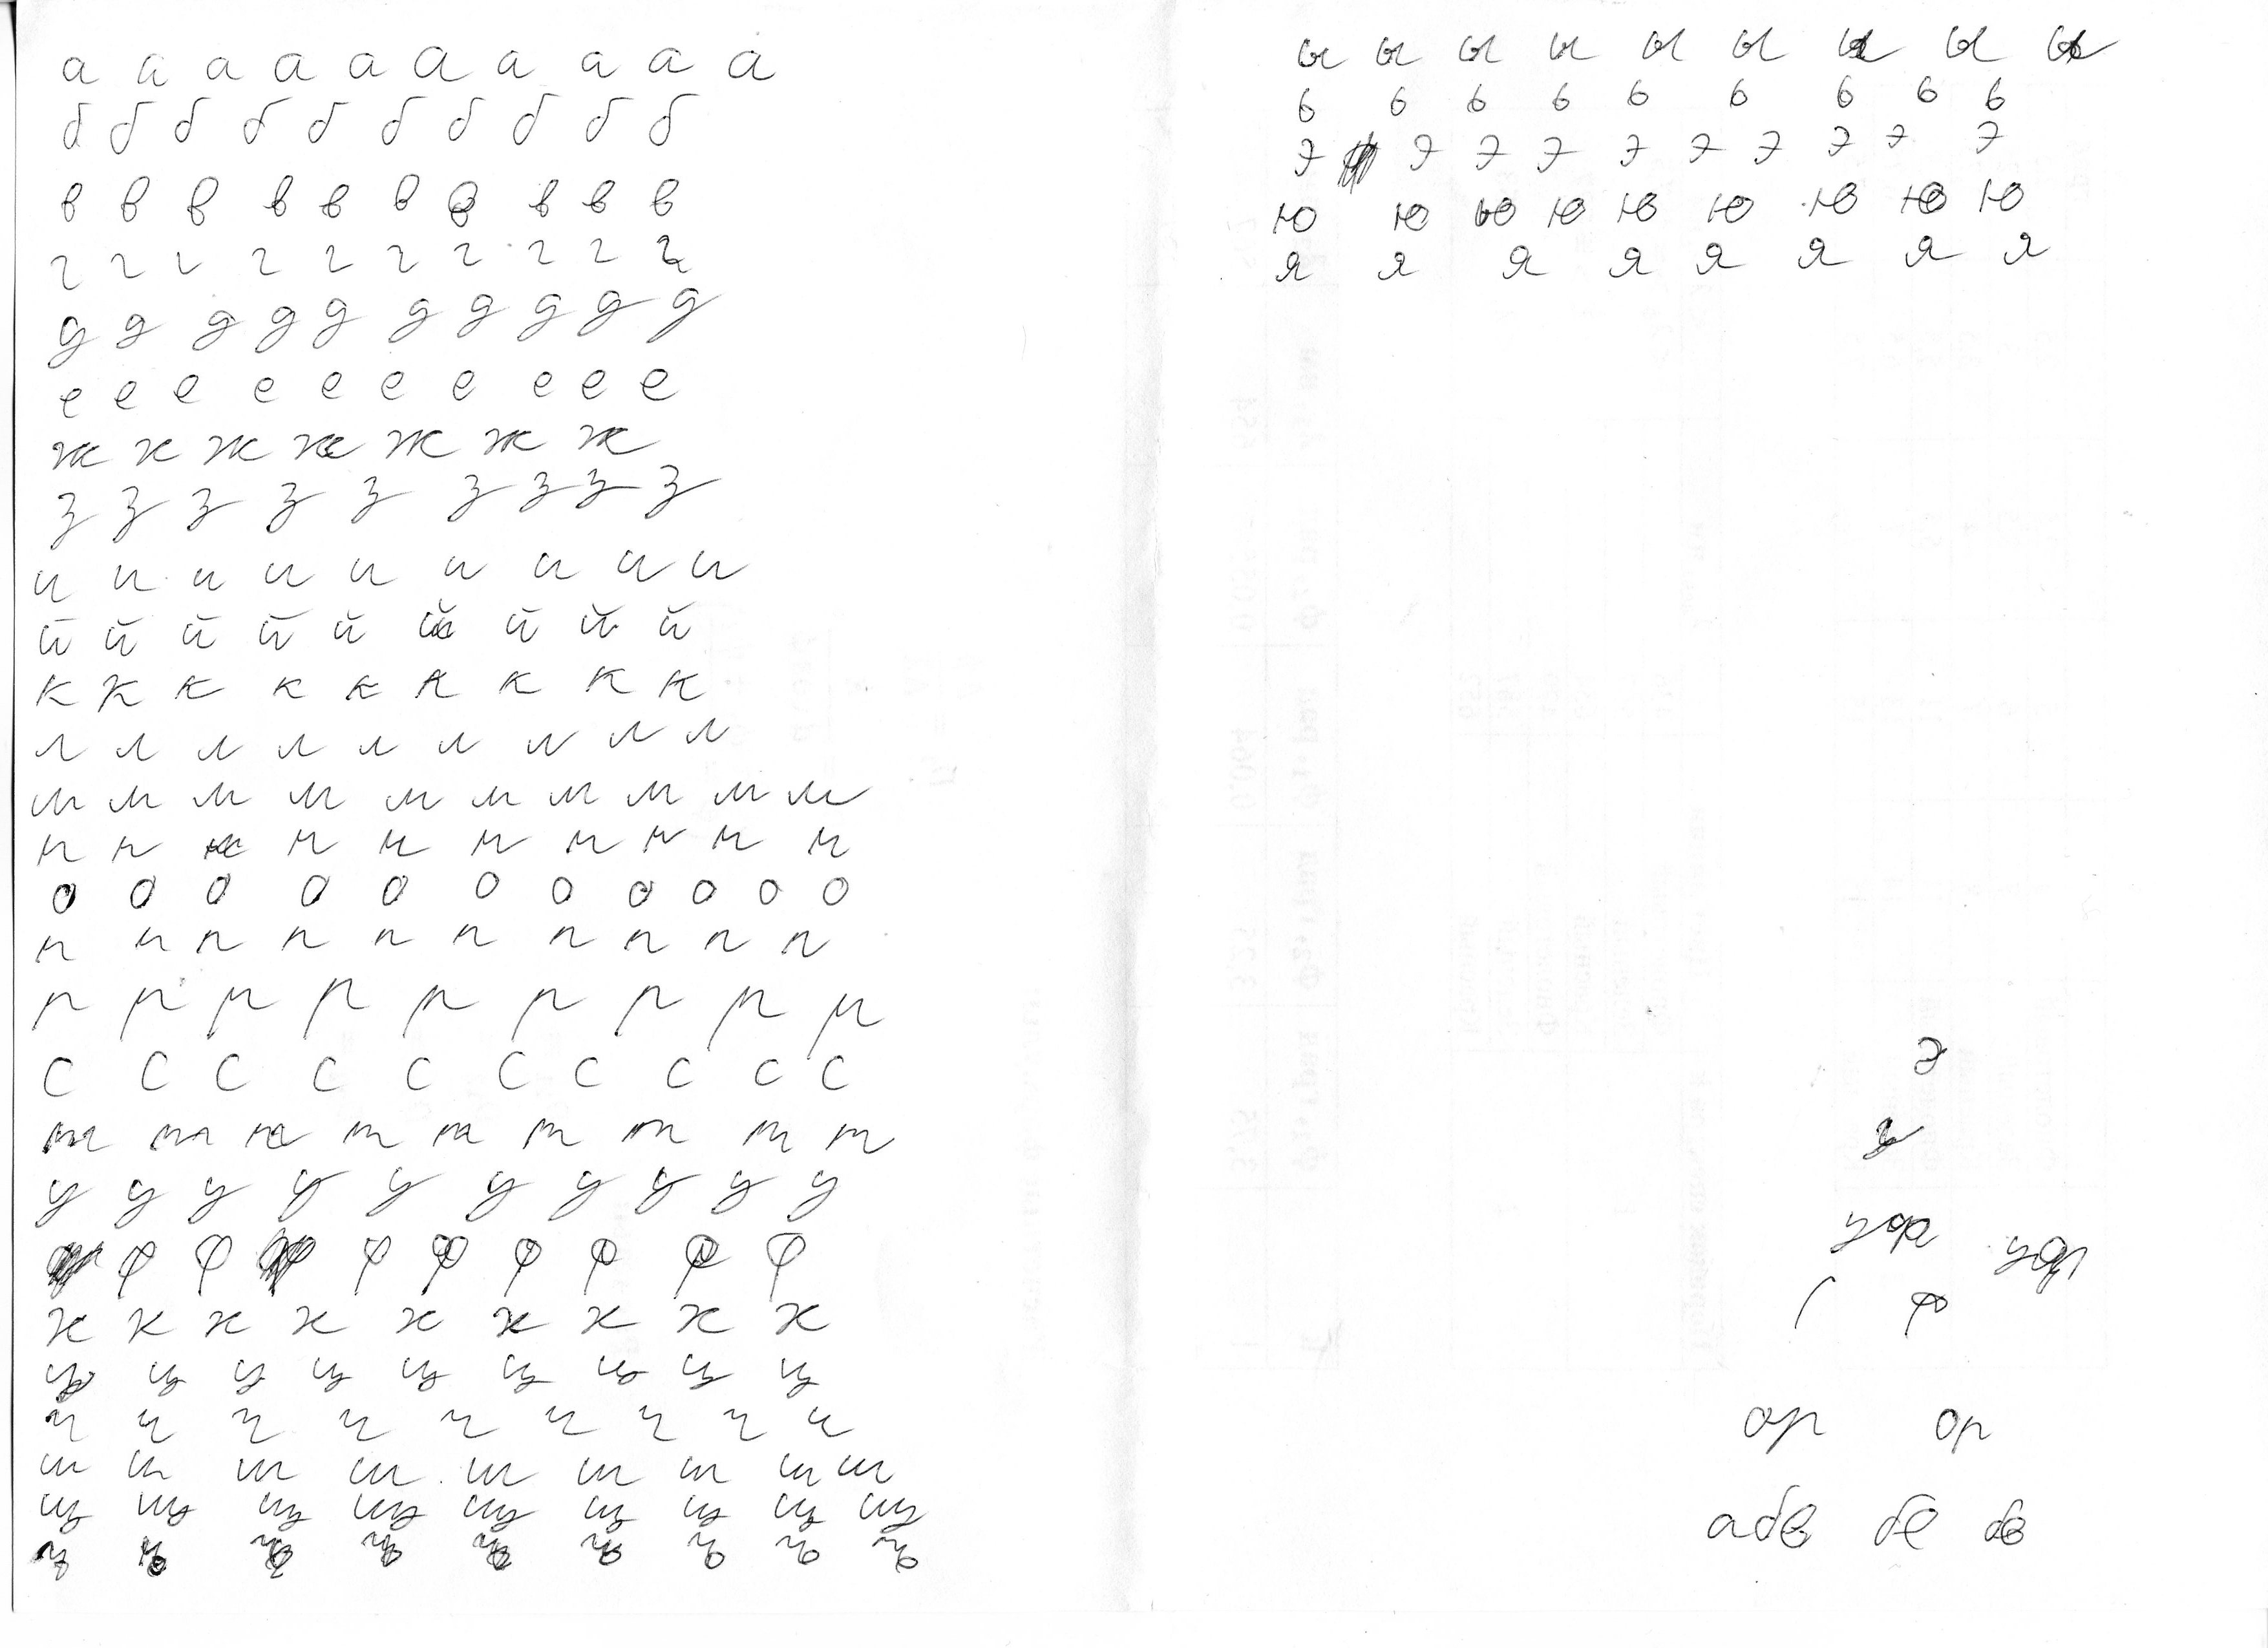 а а а а а а а а а а
б б б б б б б б б б
в в в в в в в в в в
г г г г г г г г г г
д д д д д д д д д д
е е е е е е е е е е
ж ж ж ж ж ж ж
з з з з з з з з з
и и и и и и и и и
й й й й й й й й й
к к к к к к к к к
л л л л л л л л л
м м м м м м м м м м
н н н н н н н н н н
о о о о о о о о о о о
п п п п п п п п п п
р р р р р р р р р
с с с с с с с с с с
т т т т т т т т т
у у у у у у у у у у
ф ф ф ф ф ф ф ф
х х х х х х х х х
ц ц ц ц ц ц ц ц ц
ч ч ч ч ч ч ч ч ч
ш ш ш ш ш ш ш ш ш
щ щ щ щ щ щ щ щ щ
ъ ъ ъ ъ ъ ъ ъ ъ ъ
ы ы ы ы ы ы ы ы ы
ь ь ь ь ь ь ь ь ь
э э э э э э э э э э
ю ю ю ю ю ю ю ю ю
я я я я я я я я
э
уф уф
ф
ор ор
абв бе бв